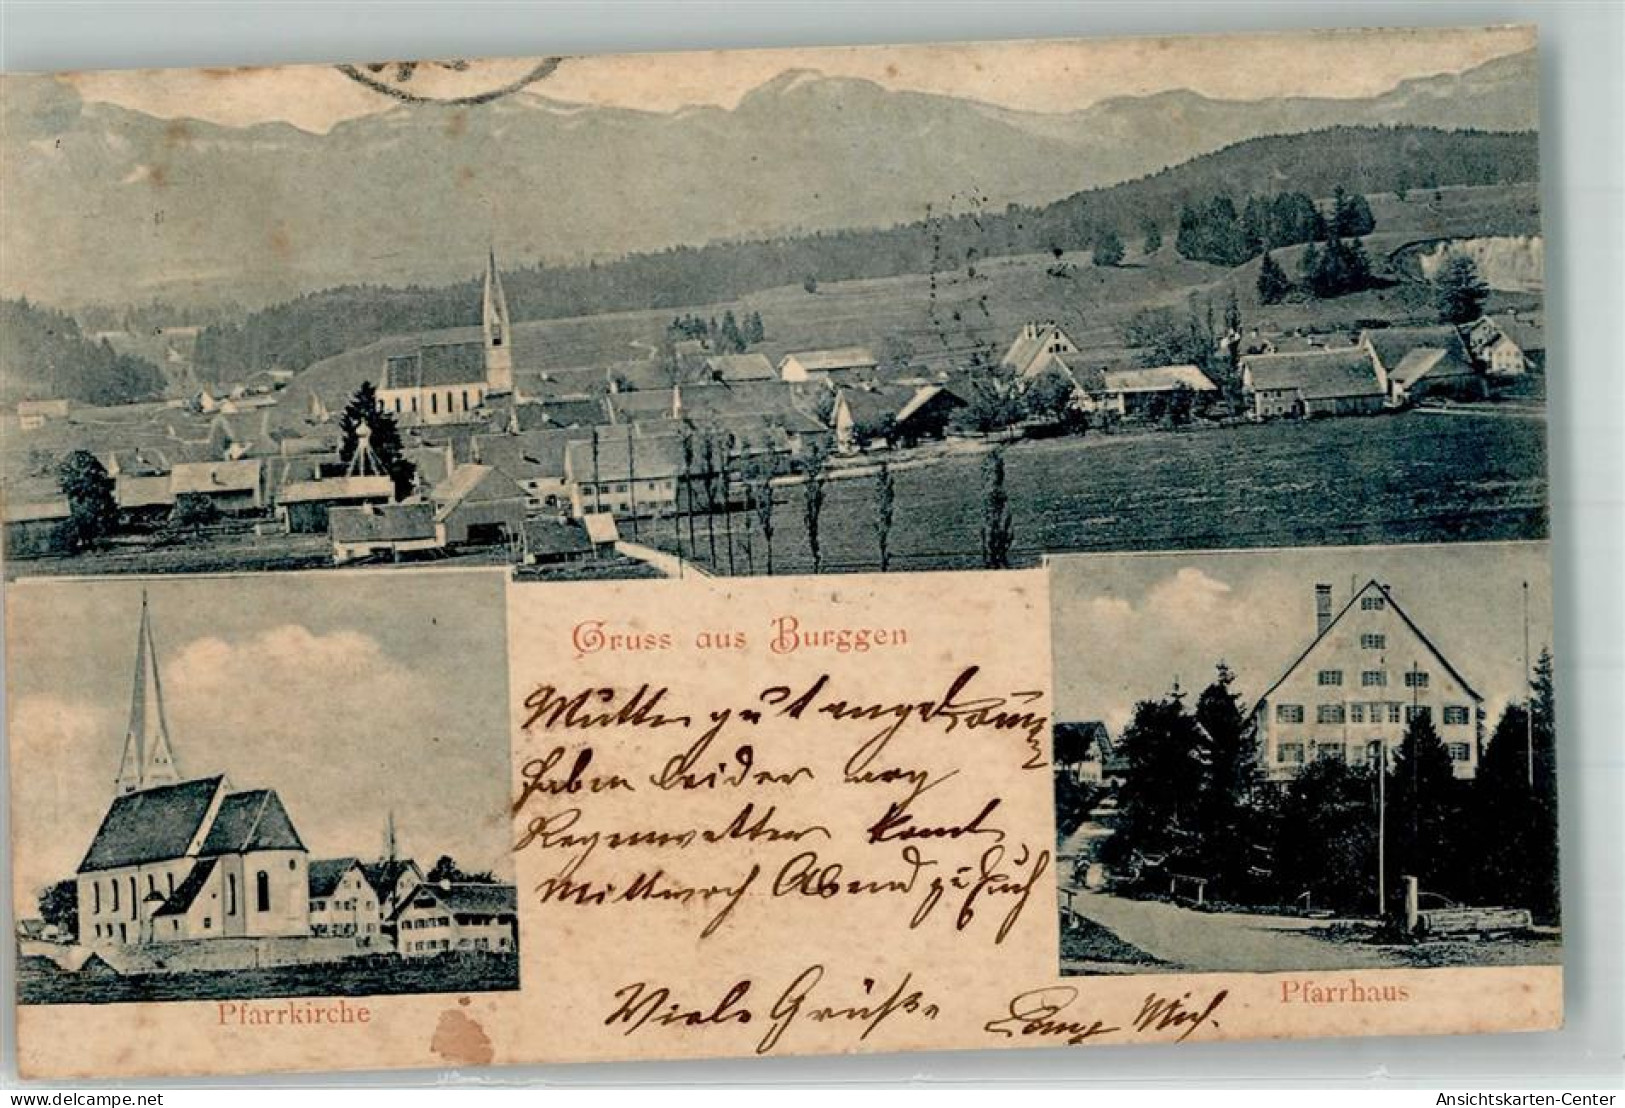 Gruss aus Burggen
Mutter gut angekomm
haben leider arg
Regenwetter komt
Mittwoch Abend zu Euch
Viele Grüße
Mich.
Pfarrkirche
Pfarrhaus
www.oldthing.de
Ansichtskarten-Center